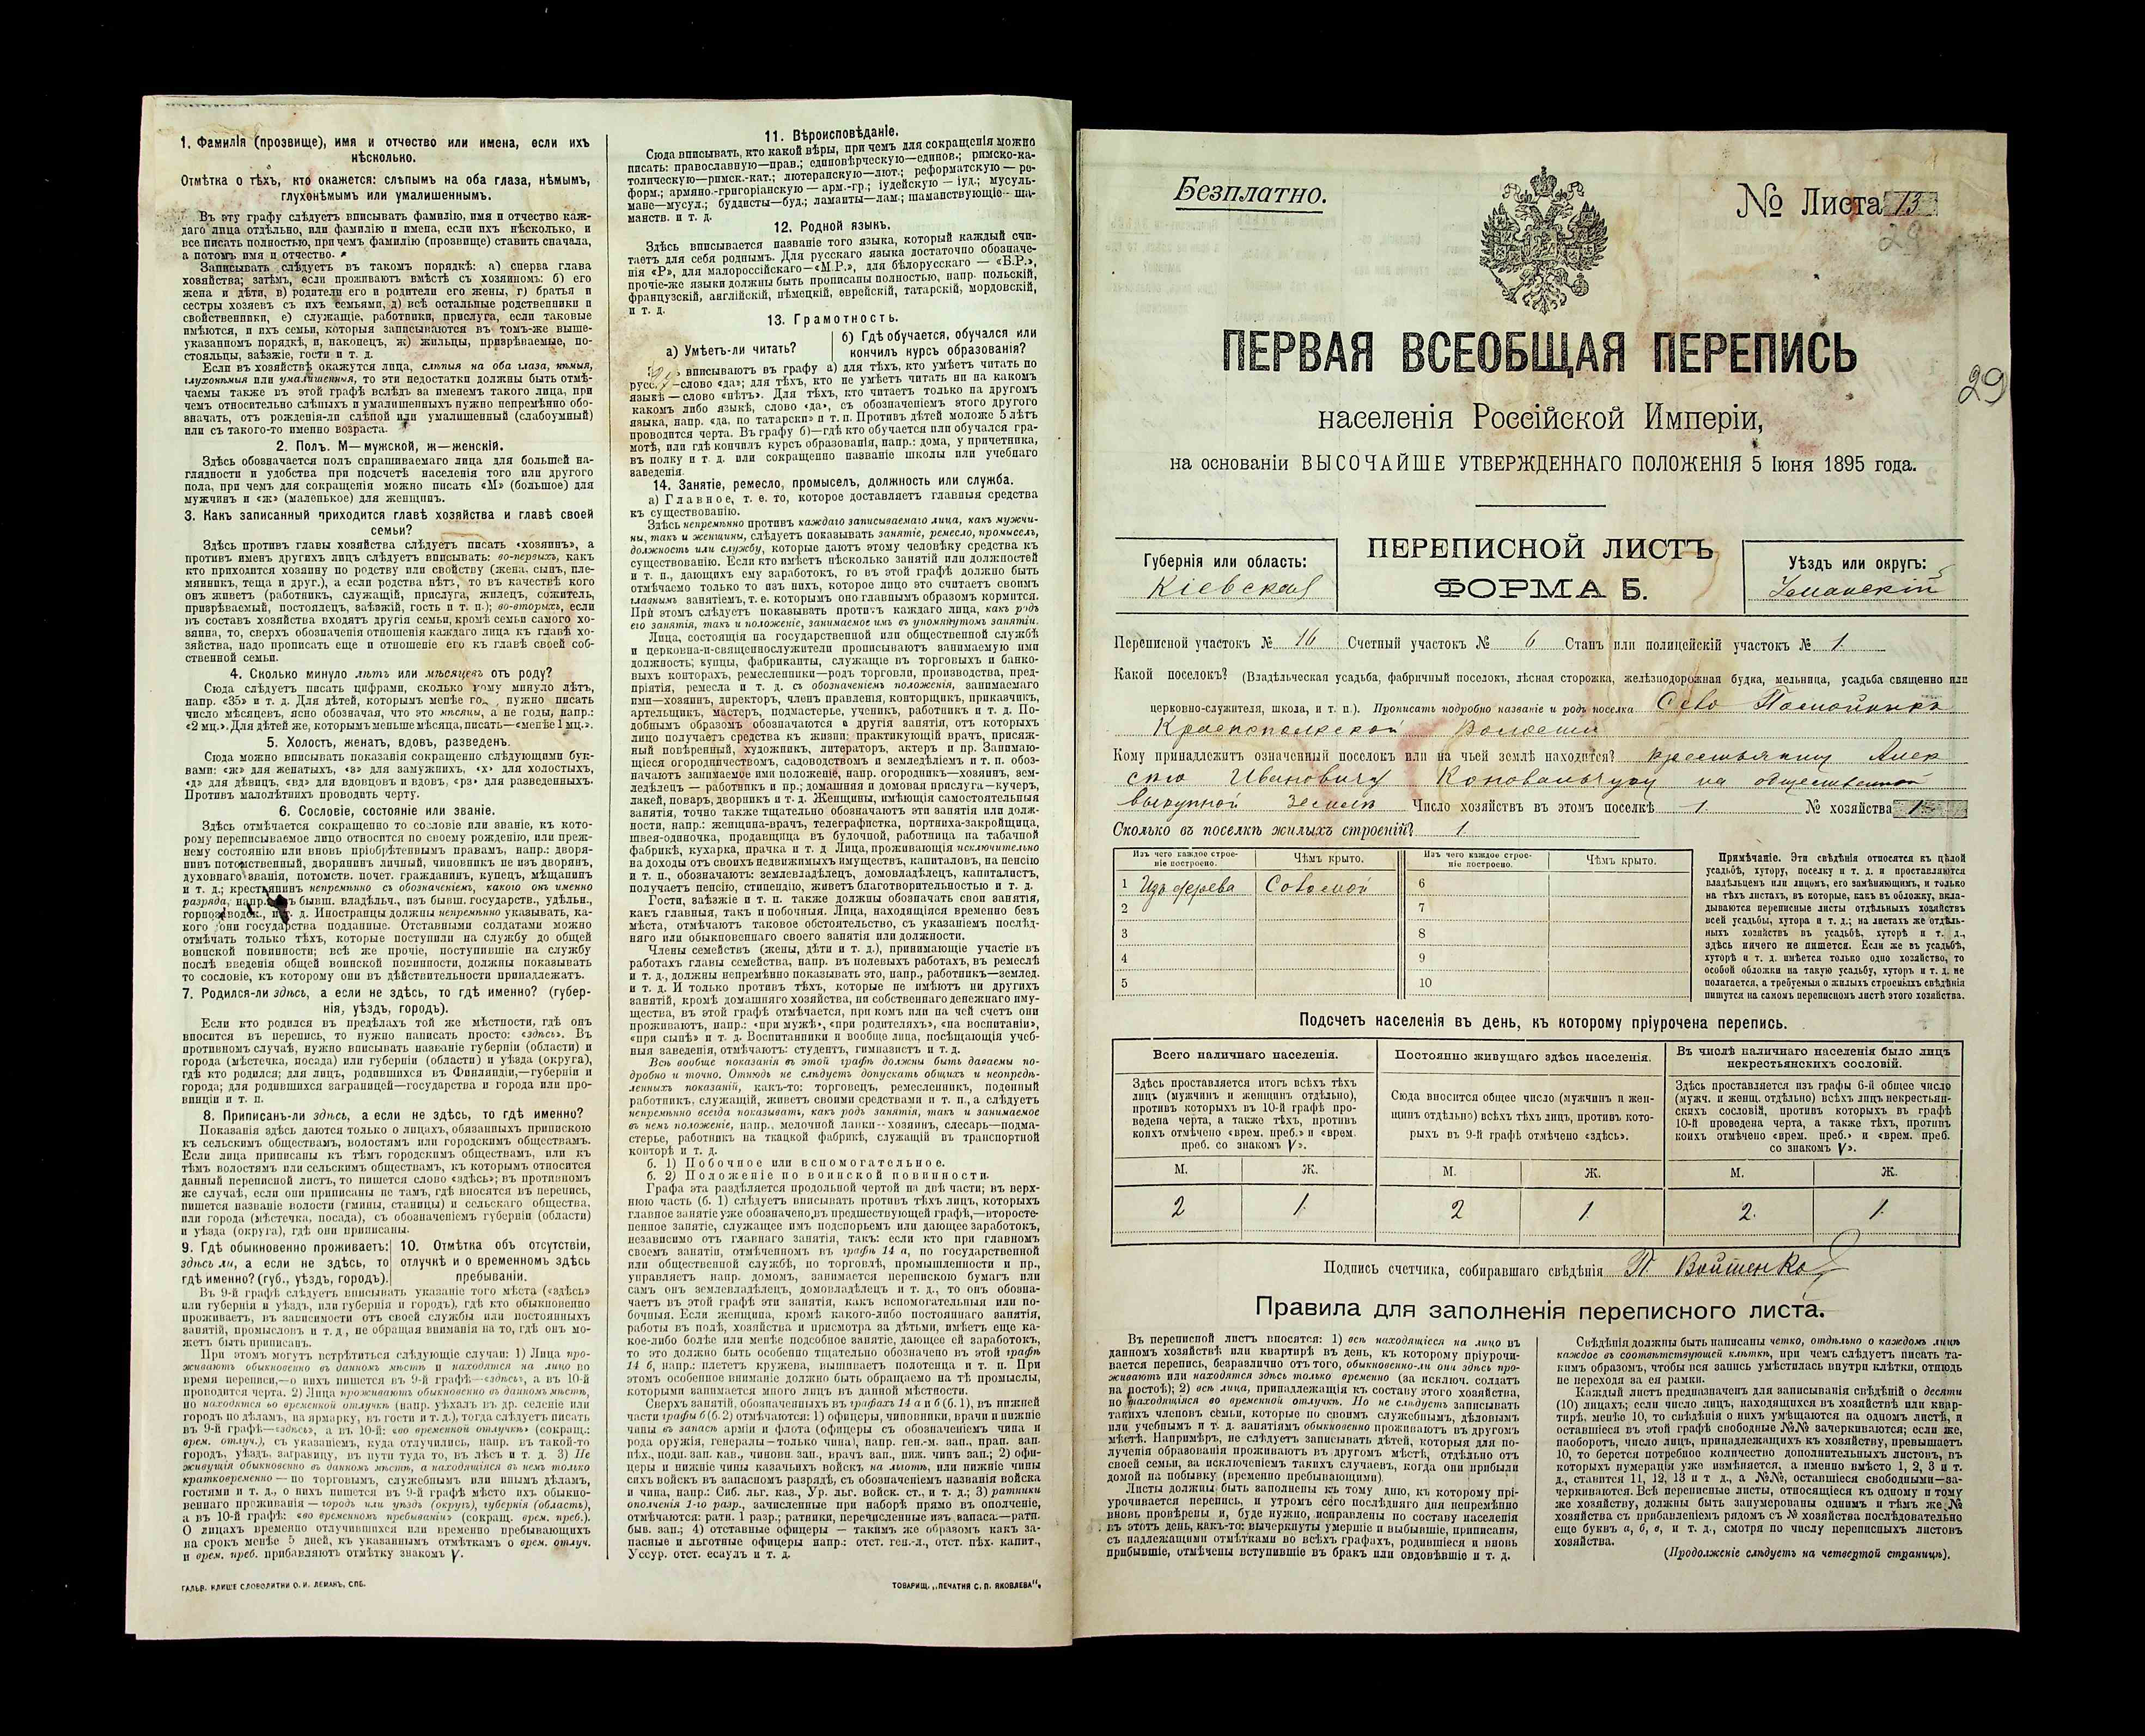 1. Фамилія (прозвище), имя и отчество или имена, если ихъ
нѣсколько.
Отмѣтка о тѣхъ, кто окажется: слѣпымъ на оба глаза, нѣмымъ,
глухонѣмымъ или умалишеннымъ.
Въ эту графу слѣдуетъ вписывать фамилію, имя и отчество каж-
даго лица отдѣльно, или фамилію и имена, если ихъ нѣсколько, и
все писать полностью, при чемъ фамилію (прозвище) ставить сначала,
а потомъ имя и отчество.
Записывать слѣдуетъ въ такомъ порядкѣ: а) сперва глава
хозяйства; затѣмъ, если проживаютъ вмѣстѣ съ хозяиномъ: б) его
жена и дѣти, в) родители его и родители его жены, г) братья и
сестры хозяевъ съ ихъ семьями, д) всѣ остальные родственники и
свойственники, е) служащіе, работники, прислуга, если таковые
имѣются, и ихъ семьи, которыя записываются въ томъ-же выше-
указанномъ порядкѣ, и, наконецъ, ж) жильцы, призрѣваемые, по-
стояльцы, заѣзжіе, гости и т. д.
Если въ хозяйствѣ окажутся лица, слѣпыя на оба глаза, нѣмыя,
глухонѣмыя или умалишенныя, то эти недостатки должны быть отмѣ-
чаемы также въ этой графѣ вслѣдъ за именемъ такого лица, при
чемъ относительно слѣпыхъ и умалишенныхъ нужно непремѣнно обо-
значать, отъ рожденія-ли слѣпой или умалишенный (слабоумный)
или съ такого-то именно возраста.
2. Полъ. М—мужской, ж—женскій.
Здѣсь обозначается полъ спрашиваемаго лица для большей на-
глядности и удобства при подсчетѣ населенія того или другого
пола, при чемъ для сокращенія можно писать «М» (большое) для
мужчинъ и «ж» (маленькое) для женщинъ.
3. Какъ записанный приходится главѣ хозяйства и главѣ своей
семьи?
Здѣсь противъ главы хозяйства слѣдуетъ писать «хозяинъ», а
противъ именъ другихъ лицъ слѣдуетъ вписывать: во-первыхъ, какъ
кто приходится хозяину по родству или свойству (жена, сынъ, пле-
мянникъ, теща и друг.), а если родства нѣтъ, то въ качествѣ кого
онъ живетъ (работникъ, служащій, прислуга, жилецъ, сожитель,
призрѣваемый, постоялецъ, заѣзжій, гость и т. п.); во-вторыхъ, если
въ составъ хозяйства входятъ другія семьи, кромѣ семьи самого хо-
зяина, то, сверхъ обозначенія отношенія каждаго лица къ главѣ хо-
зяйства, надо прописать еще и отношеніе его къ главѣ своей соб-
ственной семьи.
4. Сколько минуло лѣтъ или мѣсяцевъ отъ роду?
Сюда слѣдуетъ писать цифрами, сколько кому минуло лѣтъ,
напр. «35» и т. д. Для дѣтей, которымъ менѣе го , нужно писать
число мѣсяцевъ, ясно обозначая, что это мѣсяцы, а не годы, напр.:
«2 мц.». Для дѣтей же, которымъ меньше мѣсяца, писать—«менѣе 1 мц.».
5. Холостъ, женатъ, вдовъ, разведенъ.
Сюда можно вписывать показанія сокращенно слѣдующими бук-
вами: «ж» для женатыхъ, «з» для замужнихъ, «х» для холостыхъ,
«д» для дѣвицъ, «вд» для вдовцовъ и вдовъ, «рз» для разведенныхъ.
Противъ малолѣтнихъ проводить черту.
6. Сословіе, состояніе или званіе.
Здѣсь отмѣчается сокращенно то сословіе или званіе, къ кото-
рому переписываемое лицо относится по своему рожденію, или преж-
нему состоянію или вновь пріобрѣтеннымъ правамъ, напр.: дворя-
нинъ потомственный, дворянинъ личный, чиновникъ не изъ дворянъ,
духовнаго званія, потомств. почет. гражданинъ, купецъ, мѣщанинъ
и т. д.; крестьянинъ непремѣнно съ обозначеніемъ, какого онъ именно
разряда, напр. ъ бывш. владѣльч., изъ бывш. государств., удѣльн.,
горнозаводск., и т. д. Иностранцы должны непремѣнно указывать, ка-
кого они государства подданные. Отставными солдатами можно
отмѣчать только тѣхъ, которые поступили на службу до общей
воинской повинности; всѣ же прочіе, поступившіе на службу
послѣ введенія общей воинской повинности, должны показывать
то сословіе, къ которому они въ дѣйствительности принадлежатъ.
7. Родился-ли здѣсь, а если не здѣсь, то гдѣ именно? (губер-
нія, уѣздъ, городъ).
Если кто родился въ предѣлахъ той же мѣстности, гдѣ онъ
вносится въ перепись, то нужно написать просто: «здѣсь». Въ
противномъ случаѣ, нужно вписывать названіе губерніи (области) и
города (мѣстечка, посада) или губерніи (области) и уѣзда (округа),
гдѣ кто родился; для лицъ, родившихся въ Финляндіи,—губерніи и
города; для родившихся заграницей—государства и города или про-
винціи и т. п.
8. Приписанъ-ли здѣсь, а если не здѣсь, то гдѣ именно?
Показанія здѣсь даются только о лицахъ, обязанныхъ припискою
къ сельскимъ обществамъ, волостямъ или городскимъ обществамъ.
Если лица приписаны къ тѣмъ городскимъ обществамъ, или къ
тѣмъ волостямъ или сельскимъ обществамъ, къ которымъ относится
данный переписной листъ, то пишется слово «здѣсь»; въ противномъ
же случаѣ, если они приписаны не тамъ, гдѣ вносятся въ перепись,
пишется названіе волости (гмины, станицы) и сельскаго общества,
или города (мѣстечка, посада), съ обозначеніемъ губерніи (области)
и уѣзда (округа), гдѣ они приписаны.
9. Гдѣ обыкновенно проживаетъ:
здѣсь ли, а если не здѣсь, то
гдѣ именно? (губ., уѣздъ, городъ).
10. Отмѣтка объ отсутствіи,
отлучкѣ и о временномъ здѣсь
пребываніи.
Въ 9-й графѣ слѣдуетъ вписывать указаніе того мѣста («здѣсь»
или губернія и уѣздъ, или губернія и городъ), гдѣ кто обыкновенно
проживаетъ, въ зависимости отъ своей службы или постоянныхъ
занятій, промысловъ и т. д., не обращая вниманія на то, гдѣ онъ мо-
жетъ быть приписанъ.
При этомъ могутъ встрѣтиться слѣдующіе случаи: 1) Лица про-
живаютъ обыкновенно въ данномъ мѣстѣ и находятся на лицо во
время переписи,—о нихъ пишется въ 9-й графѣ—«здѣсь», а въ 10-й
проводится черта. 2) Лица проживаютъ обыкновенно въ данномъ мѣстѣ,
но находятся во временной отлучкѣ (напр. уѣхалъ въ др. селеніе или
городъ по дѣламъ, на ярмарку, въ гости и т. д.), тогда слѣдуетъ писать
въ 9-й графѣ—«здѣсь», а въ 10-й: «во временной отлучкѣ» (сокращ.:
врем. отлуч.), съ указаніемъ, куда отлучились, напр. въ такой-то
городъ, уѣздъ, заграницу, въ пути туда то, въ лѣсъ и т. д. 3) Не
живущія обыкновенно въ данномъ мѣстѣ, а находящіяся въ немъ только
кратковременно — по торговымъ, служебнымъ или инымъ дѣламъ,
гостями и т. д., о нихъ пишется въ 9-й графѣ мѣсто ихъ обыкно-
веннаго проживанія — городъ или уѣздъ (округъ), губернія (область),
а въ 10-й графѣ: «во временномъ пребываніи» (сокращ. врем. преб.).
О лицахъ временно отлучившихся или временно пребывающихъ
на срокъ менѣе 5 дней, къ указаннымъ отмѣткамъ о врем. отлуч.
и врем. преб. прибавляютъ отмѣтку знакомъ V.
ГАЛЬВ. КЛИШЕ СЛОВОЛИТНИ О. И. ЛЕМАНЪ, СПБ.
11. Вѣроисповѣданіе.
Сюда вписывать, кто какой вѣры, при чемъ для сокращенія можно
писать: православную—прав.; единовѣрческую—единов.; римско-ка-
толическую—римск.-кат.; лютеранскую—лют.; реформатскую — ре-
форм.; армяно.-григоріанскую — арм.-гр.; іудейскую — іуд.; мусуль-
мане—мусул.; буддисты—буд.; ламаиты—лам.; шаманствующіе— ша-
манств. и т. д.
12. Родной языкъ.
Здѣсь вписывается названіе того языка, который каждый счи-
таетъ для себя роднымъ. Для русскаго языка достаточно обозначе-
нія «Р», для малороссійскаго—«М.Р.», для бѣлорусскаго — «Б.Р.»,
прочіе-же языки должны быть прописаны полностью, напр. польскій,
французскій, англійскій, нѣмецкій, еврейскій, татарскій, мордовскій,
и т. д.
13. Грамотность.
а) Умѣетъ-ли читать?
б) Гдѣ обучается, обучался или
кончилъ курсъ образованія?
вписываютъ въ графу а) для тѣхъ, кто умѣетъ читать по
русс. —слово «да»; для тѣхъ, кто не умѣетъ читать ни на какомъ
языкѣ — слово «нѣтъ». Для тѣхъ, кто читаетъ только на другомъ
какомъ либо языкѣ, слово «да», съ обозначеніемъ этого другого
языка, напр. «да, по татарски» и т. п. Противъ дѣтей моложе 5 лѣтъ
проводится черта. Въ графу б)—гдѣ кто обучается или обучался гра-
мотѣ, или гдѣ кончилъ курсъ образованія, напр.: дома, у причетника,
въ полку и т. д. или сокращенно названіе школы или учебнаго
заведенія.
14. Занятіе, ремесло, промыселъ, должность или служба.
а) Главное, т. е. то, которое доставляетъ главныя средства
къ существованію.
Здѣсь непремѣнно противъ каждаго записываемаго лица, какъ мужчи-
ны, такъ и женщины, слѣдуетъ показывать занятіе, ремесло, промыселъ,
должность или службу, которые даютъ этому человѣку средства къ
существованію. Если кто имѣетъ нѣсколько занятій или должностей
и т. п., дающихъ ему заработокъ, то въ этой графѣ должно быть
отмѣчаемо только то изъ нихъ, которое лицо это считаетъ своимъ
главнымъ занятіемъ, т. е. которымъ оно главнымъ образомъ кормится.
При этомъ слѣдуетъ показывать противъ каждаго лица, какъ родъ
его занятія, такъ и положеніе, занимаемое имъ въ упомянутомъ занятіи.
Лица, состоящія на государственной или общественной службѣ
и церковно-и-священнослужители прописываютъ занимаемую ими
должность; купцы, фабриканты, служащіе въ торговыхъ и банко-
выхъ конторахъ, ремесленники—родъ торговли, производства, пред-
пріятія, ремесла и т. д. съ обозначеніемъ положенія, занимаемаго
ими—хозяинъ, директоръ, членъ правленія, конторщикъ, приказчикъ,
артельщикъ, мастеръ, подмастерье, ученикъ, работникъ и т. д. По-
добнымъ образомъ обозначаются и другія занятія, отъ которыхъ
лицо получаетъ средства къ жизни: практикующій врачъ, присяж-
ный повѣренный, художникъ, литераторъ, актеръ и пр. Занимаю-
щіеся огородничествомъ, садоводствомъ и земледѣліемъ и т. п. обоз-
начаютъ занимаемое ими положеніе, напр. огородникъ—хозяинъ, зем-
ледѣлецъ — работникъ и пр.; домашняя и домовая прислуга—кучеръ,
лакей, поваръ, дворникъ и т. д. Женщины, имѣющія самостоятельныя
занятія, точно также тщательно обозначаютъ эти занятія или долж-
ности, напр.: женщина-врачъ, телеграфистка, портниха-закройщица,
швея-одиночка, продавщица въ булочной, работница на табачной
фабрикѣ, кухарка, прачка и т. д. Лица, проживающія исключительно
на доходы отъ своихъ недвижимыхъ имуществъ, капиталовъ, на пенсію
и т. п., обозначаютъ: землевладѣлецъ, домовладѣлецъ, капиталистъ,
получаетъ пенсію, стипендію, живетъ благотворительностью и т. д.
Гости, заѣзжіе и т. п. также должны обозначать свои занятія,
какъ главныя, такъ и побочныя. Лица, находящіяся временно безъ
мѣста, отмѣчаютъ таковое обстоятельство, съ указаніемъ послѣд-
няго или обыкновеннаго своего занятія или должности.
Члены семействъ (жены, дѣти и т. д.), принимающіе участіе въ
работахъ главы семейства, напр. въ полевыхъ работахъ, въ ремеслѣ
и т. д., должны непремѣнно показывать это, напр., работникъ—землед.
и т. д. И только противъ тѣхъ, которые не имѣютъ ни другихъ
занятій, кромѣ домашняго хозяйства, ни собственнаго денежнаго иму-
щества, въ этой графѣ отмѣчается, при комъ или на чей счетъ они
проживаютъ, напр.: «при мужѣ», «при родителяхъ», «на воспитаніи»,
«при сынѣ» и т. д. Воспитанники и вообще лица, посѣщающія учеб-
ныя заведенія, отмѣчаютъ: студентъ, гимназистъ и т. д.
Всѣ вообще показанія въ этой графѣ должны быть даваемы по-
дробно и точно. Отнюдь не слѣдуетъ допускать общихъ и неопредѣ-
ленныхъ показаній, какъ-то: торговецъ, ремесленникъ, поденный
работникъ, служащій, живетъ своими средствами и т. п., а слѣдуетъ
непремѣнно всегда показывать, какъ родъ занятія, такъ и занимаемое
въ немъ положеніе, напр., мелочной лавки--хозяинъ, слесарь—подма-
стерье, работникъ на ткацкой фабрикѣ, служащій въ транспортной
конторѣ и т. д.
б. 1) Побочное или вспомогательное.
б. 2) Положеніе по воинской повинности.
Графа эта раздѣляется продольной чертой на двѣ части; въ верх-
нюю часть (б. 1) слѣдуетъ вписывать противъ тѣхъ лицъ, которыхъ
главное занятіе уже обозначено, въ предшествующей графѣ,—второсте-
пенное занятіе, служащее имъ подспорьемъ или дающее заработокъ,
независимо отъ главнаго занятія, такъ: если кто при главномъ
своемъ занятіи, отмѣченномъ въ графѣ 14 а, по государственной
или общественной службѣ, по торговлѣ, промышленности и пр.,
управляетъ напр. домомъ, занимается перепискою бумагъ или
самъ онъ землевладѣлецъ, домовладѣлецъ и т. д., то онъ обозна-
чаетъ въ этой графѣ эти занятія, какъ вспомогательныя или по-
бочныя. Если женщина, кромѣ какого-либо постояннаго занятія,
работы въ полѣ, хозяйства и присмотра за дѣтьми, имѣетъ еще ка-
кое-либо болѣе или менѣе подсобное занятіе, дающее ей заработокъ,
то это должно быть особенно тщательно обозначено въ этой графѣ
14 б, напр.: плететъ кружева, вышиваетъ полотенца и т. п. При
этомъ особенное вниманіе должно быть обращаемо на тѣ промыслы,
которыми занимается много лицъ въ данной мѣстности.
Сверхъ занятій, обозначенныхъ въ графахъ 14 а и б (б. 1), въ нижней
части графы б (б. 2) отмѣчаются: 1) офицеры, чиновники, врачи и нижніе
чины въ запасѣ арміи и флота (офицеры съ обозначеніемъ чина и
рода оружія, генералы—только чина), напр. ген.-м. зап., прап. зап.
пѣх., подп. зап. кав., чиновн. зап., врачъ зап., ниж. чинъ зап.; 2) офи-
церы и нижніе чины казачьихъ войскъ на льготѣ, или нижніе чины
сихъ войскъ въ запасномъ разрядѣ, съ обозначеніемъ названія войска
и чина, напр.: Сиб. льг. каз., Ур. льг. войск. ст., и т. д.; 3) ратники
ополченія 1-го разр., зачисленные при наборѣ прямо въ ополченіе,
отмѣчаются: ратн. 1 разр.; ратники, перечисленные изъ запаса—ратн.
быв. зап.; 4) отставные офицеры — такимъ же образомъ какъ за-
пасные и льготные офицеры напр.: отст. ген.-л., отст. пѣх. капит.,
Уссур. отст. есаулъ и т. д.
ТОВАРИЩ. „ПЕЧАТНЯ С. П. ЯКОВЛЕВА".
Безплатно.
№ Листа 13
29
ПЕРВАЯ ВСЕОБЩАЯ ПЕРЕПИСЬ
29
населенія Россійской Имперіи,
на основаніи ВЫСОЧАЙШЕ УТВЕРЖДЕННАГО ПОЛОЖЕНІЯ 5 Іюня 1895 года.
Губернія или область:
Кіевская
ПЕРЕПИСНОЙ ЛИСТЪ
ФОРМА Б.
Уѣздъ или округъ:
Уманскій
Переписной участокъ № 16 Счетный участокъ № 6 Станъ или полицейскій участокъ № 1.
Какой поселокъ? (Владѣльческая усадьба, фабричный поселокъ, лѣсная сторожка, желѣзнодорожная будка, мельница, усадьба священно или
церковно-служителя, школа, и т. п.). Прописать подробно названіе и родъ поселка Село Помойникъ
Краснопольской Волости
Кому принадлежитъ означенный поселокъ или на чьей землѣ находится? крестьянину Алек
сѣю Ивановичу Коновальчуку на общественной
выкупной землѣ Число хозяйствъ въ этомъ поселкѣ 1. № хозяйства 1
Сколько въ поселкѣ жилыхъ строеній? 1
Изъ чего каждое строе-
ніе построено.
Чѣмъ крыто.
Изъ чего каждое строе-
ніе построено.
Чѣмъ крыто.
1 Изъ дерева Соломой 6
2 7
3 8
4 9
5 10
Примѣчаніе. Эти свѣдѣнія относятся къ цѣлой
усадьбѣ, хутору, поселку и т. д. и проставляются
владѣльцемъ или лицомъ, его замѣняющимъ, и только
на тѣхъ листахъ, въ которые, какъ въ обложку, вкла-
дываются переписные листы отдѣльныхъ хозяйствъ
всей усадьбы, хутора и т. д.; на листахъ же отдѣль-
ныхъ хозяйствъ въ усадьбѣ, хуторѣ и т. д.,
здѣсь ничего не пишется. Если же въ усадьбѣ,
хуторѣ и т. д. имѣется только одно хозяйство, то
особой обложки на такую усадьбу, хуторъ и т. д. не
полагается, а требуемыя о жилыхъ строеніяхъ свѣдѣнія
пишутся на самомъ переписномъ листѣ этого хозяйства.
Подсчетъ населенія въ день, къ которому пріурочена перепись.
Всего наличнаго населенія.
Здѣсь проставляется итогъ всѣхъ тѣхъ
лицъ (мужчинъ и женщинъ отдѣльно),
противъ которыхъ въ 10-й графѣ про-
ведена черта, а также тѣхъ, противъ
коихъ отмѣчено «врем. преб.» и «врем.
преб. со знакомъ V».
Постоянно живущаго здѣсь населенія.
Сюда вносится общее число (мужчинъ и жен-
щинъ отдѣльно) всѣхъ тѣхъ лицъ, противъ кото-
рыхъ въ 9-й графѣ отмѣчено «здѣсь».
Въ числѣ наличнаго населенія было лицъ
некрестьянскихъ сословій.
Здѣсь проставляется изъ графы 6-й общее число
(мужч. и женщ. отдѣльно) всѣхъ лицъ некрестьян-
скихъ сословій, противъ которыхъ въ графѣ
10-й проведена черта, а также тѣхъ, противъ
коихъ отмѣчено «врем. преб.» и «врем. преб.
со знакомъ V».
М. Ж. М. Ж. М. Ж.
2 1. 2 1 2. 1
Подпись счетчика, собиравшаго свѣдѣнія П. Войтенко
Правила для заполненія переписного листа.
Въ переписной листъ вносятся: 1) всѣ находящіеся на лицо въ
данномъ хозяйствѣ или квартирѣ въ день, къ которому пріурочи-
вается перепись, безразлично отъ того, обыкновенно-ли они здѣсь про-
живаютъ или находятся здѣсь только временно (за исключ. солдатъ
на постоѣ); 2) всѣ лица, принадлежащія къ составу этого хозяйства,
но находящіяся во временной отлучкѣ. Но не слѣдуетъ записывать
такихъ членовъ семьи, которые по своимъ служебнымъ, дѣловымъ
или учебнымъ и т. д. занятіямъ обыкновенно проживаютъ въ другомъ
мѣстѣ. Напримѣръ, не слѣдуетъ записывать дѣтей, которыя для по-
лученія образованія проживаютъ въ другомъ мѣстѣ, отдѣльно отъ
своей семьи, за исключеніемъ такихъ случаевъ, когда они прибыли
домой на побывку (временно пребывающими).
Листы должны быть заполнены къ тому дню, къ которому прі-
урочивается перепись, и утромъ сего послѣдняго дня непремѣнно
вновь провѣрены и, буде нужно, исправлены по составу населенія
въ этотъ день, какъ-то: вычеркнуты умершіе и выбывшіе, приписаны,
съ надлежащими отмѣтками во всѣхъ графахъ, родившіеся и вновь
прибывшіе, отмѣчены вступившіе въ бракъ или овдовѣвшіе и т. д.
Свѣдѣнія должны быть написаны четко, отдѣльно о каждомъ лицѣ
каждое въ соотвѣтствующей клѣткѣ, при чемъ слѣдуетъ писать та-
кимъ образомъ, чтобы вся запись умѣстилась внутри клѣтки, отнюдь
не переходя за ея рамки.
Каждый листъ предназначенъ для записыванія свѣдѣній о десяти
(10) лицахъ; если число лицъ, находящихся въ хозяйствѣ или квар-
тирѣ, менѣе 10, то свѣдѣнія о нихъ умѣщаются на одномъ листѣ, и
оставшіеся въ этой графѣ свободные №№ зачеркиваются; если же,
наоборотъ, число лицъ, принадлежащихъ къ хозяйству, превышаетъ
10, то берется потребное количество дополнительныхъ листовъ, въ
которыхъ нумерація уже измѣняется, а именно вмѣсто 1, 2, 3 и т.
д., ставится 11, 12, 13 и т. д., а №№, оставшіеся свободными—за-
черкиваются. Всѣ переписные листы, относящіеся къ одному и тому
же хозяйству, должны быть занумерованы однимъ и тѣмъ же №
хозяйства съ прибавленіемъ рядомъ съ № хозяйства послѣдовательно
еще буквъ а, б, в, и т. д., смотря по числу переписныхъ листовъ
хозяйства.
(Продолженіе слѣдуетъ на четвертой страницѣ).